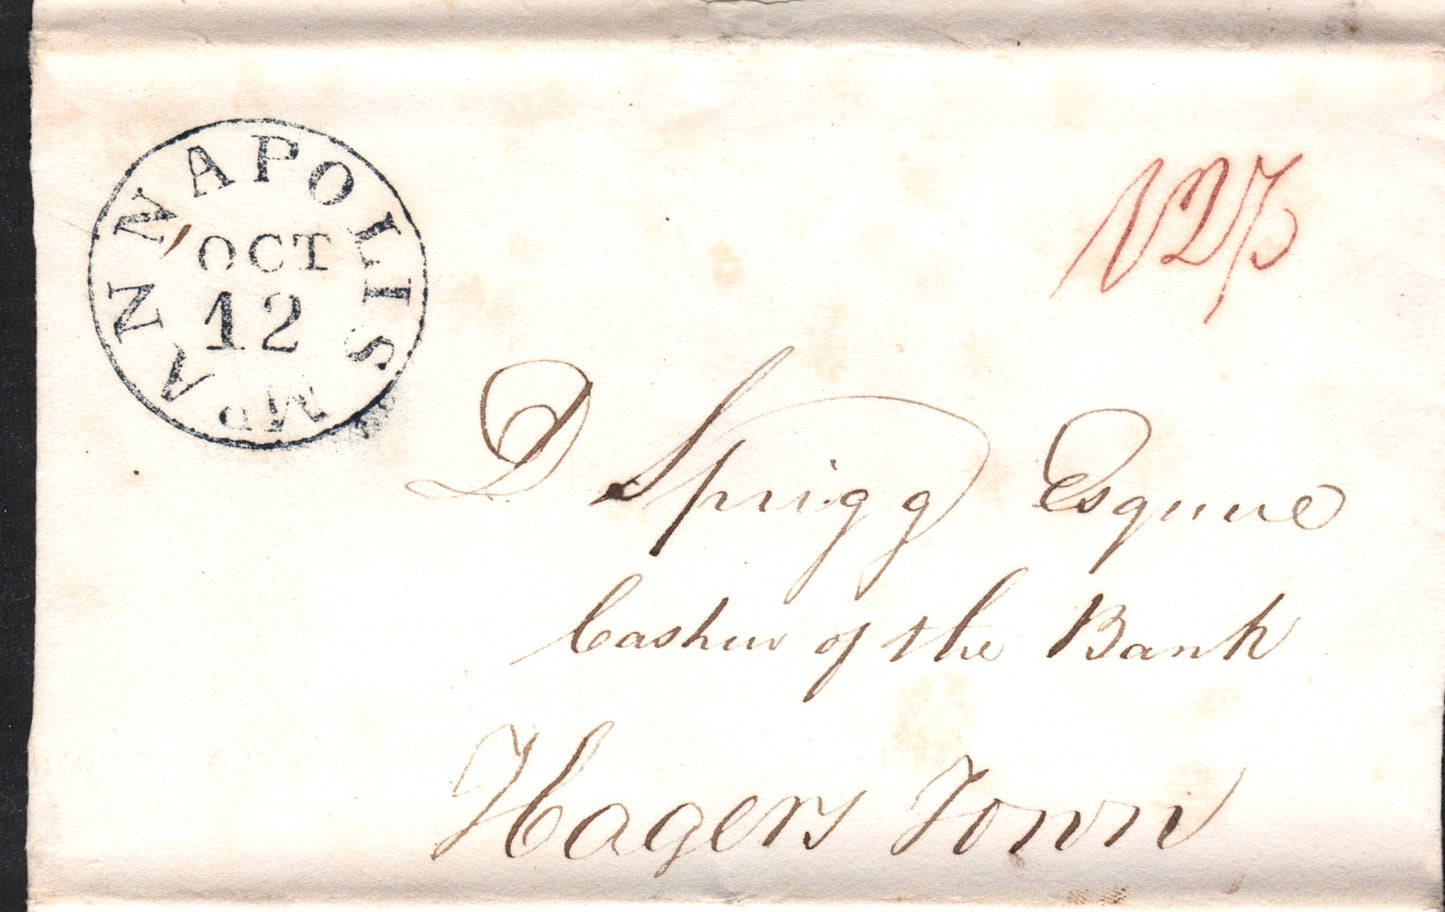 ANNAPOLIS Md
OCT
12
D Sprigg Esquire
Cashier of the Bank
Hagers Town